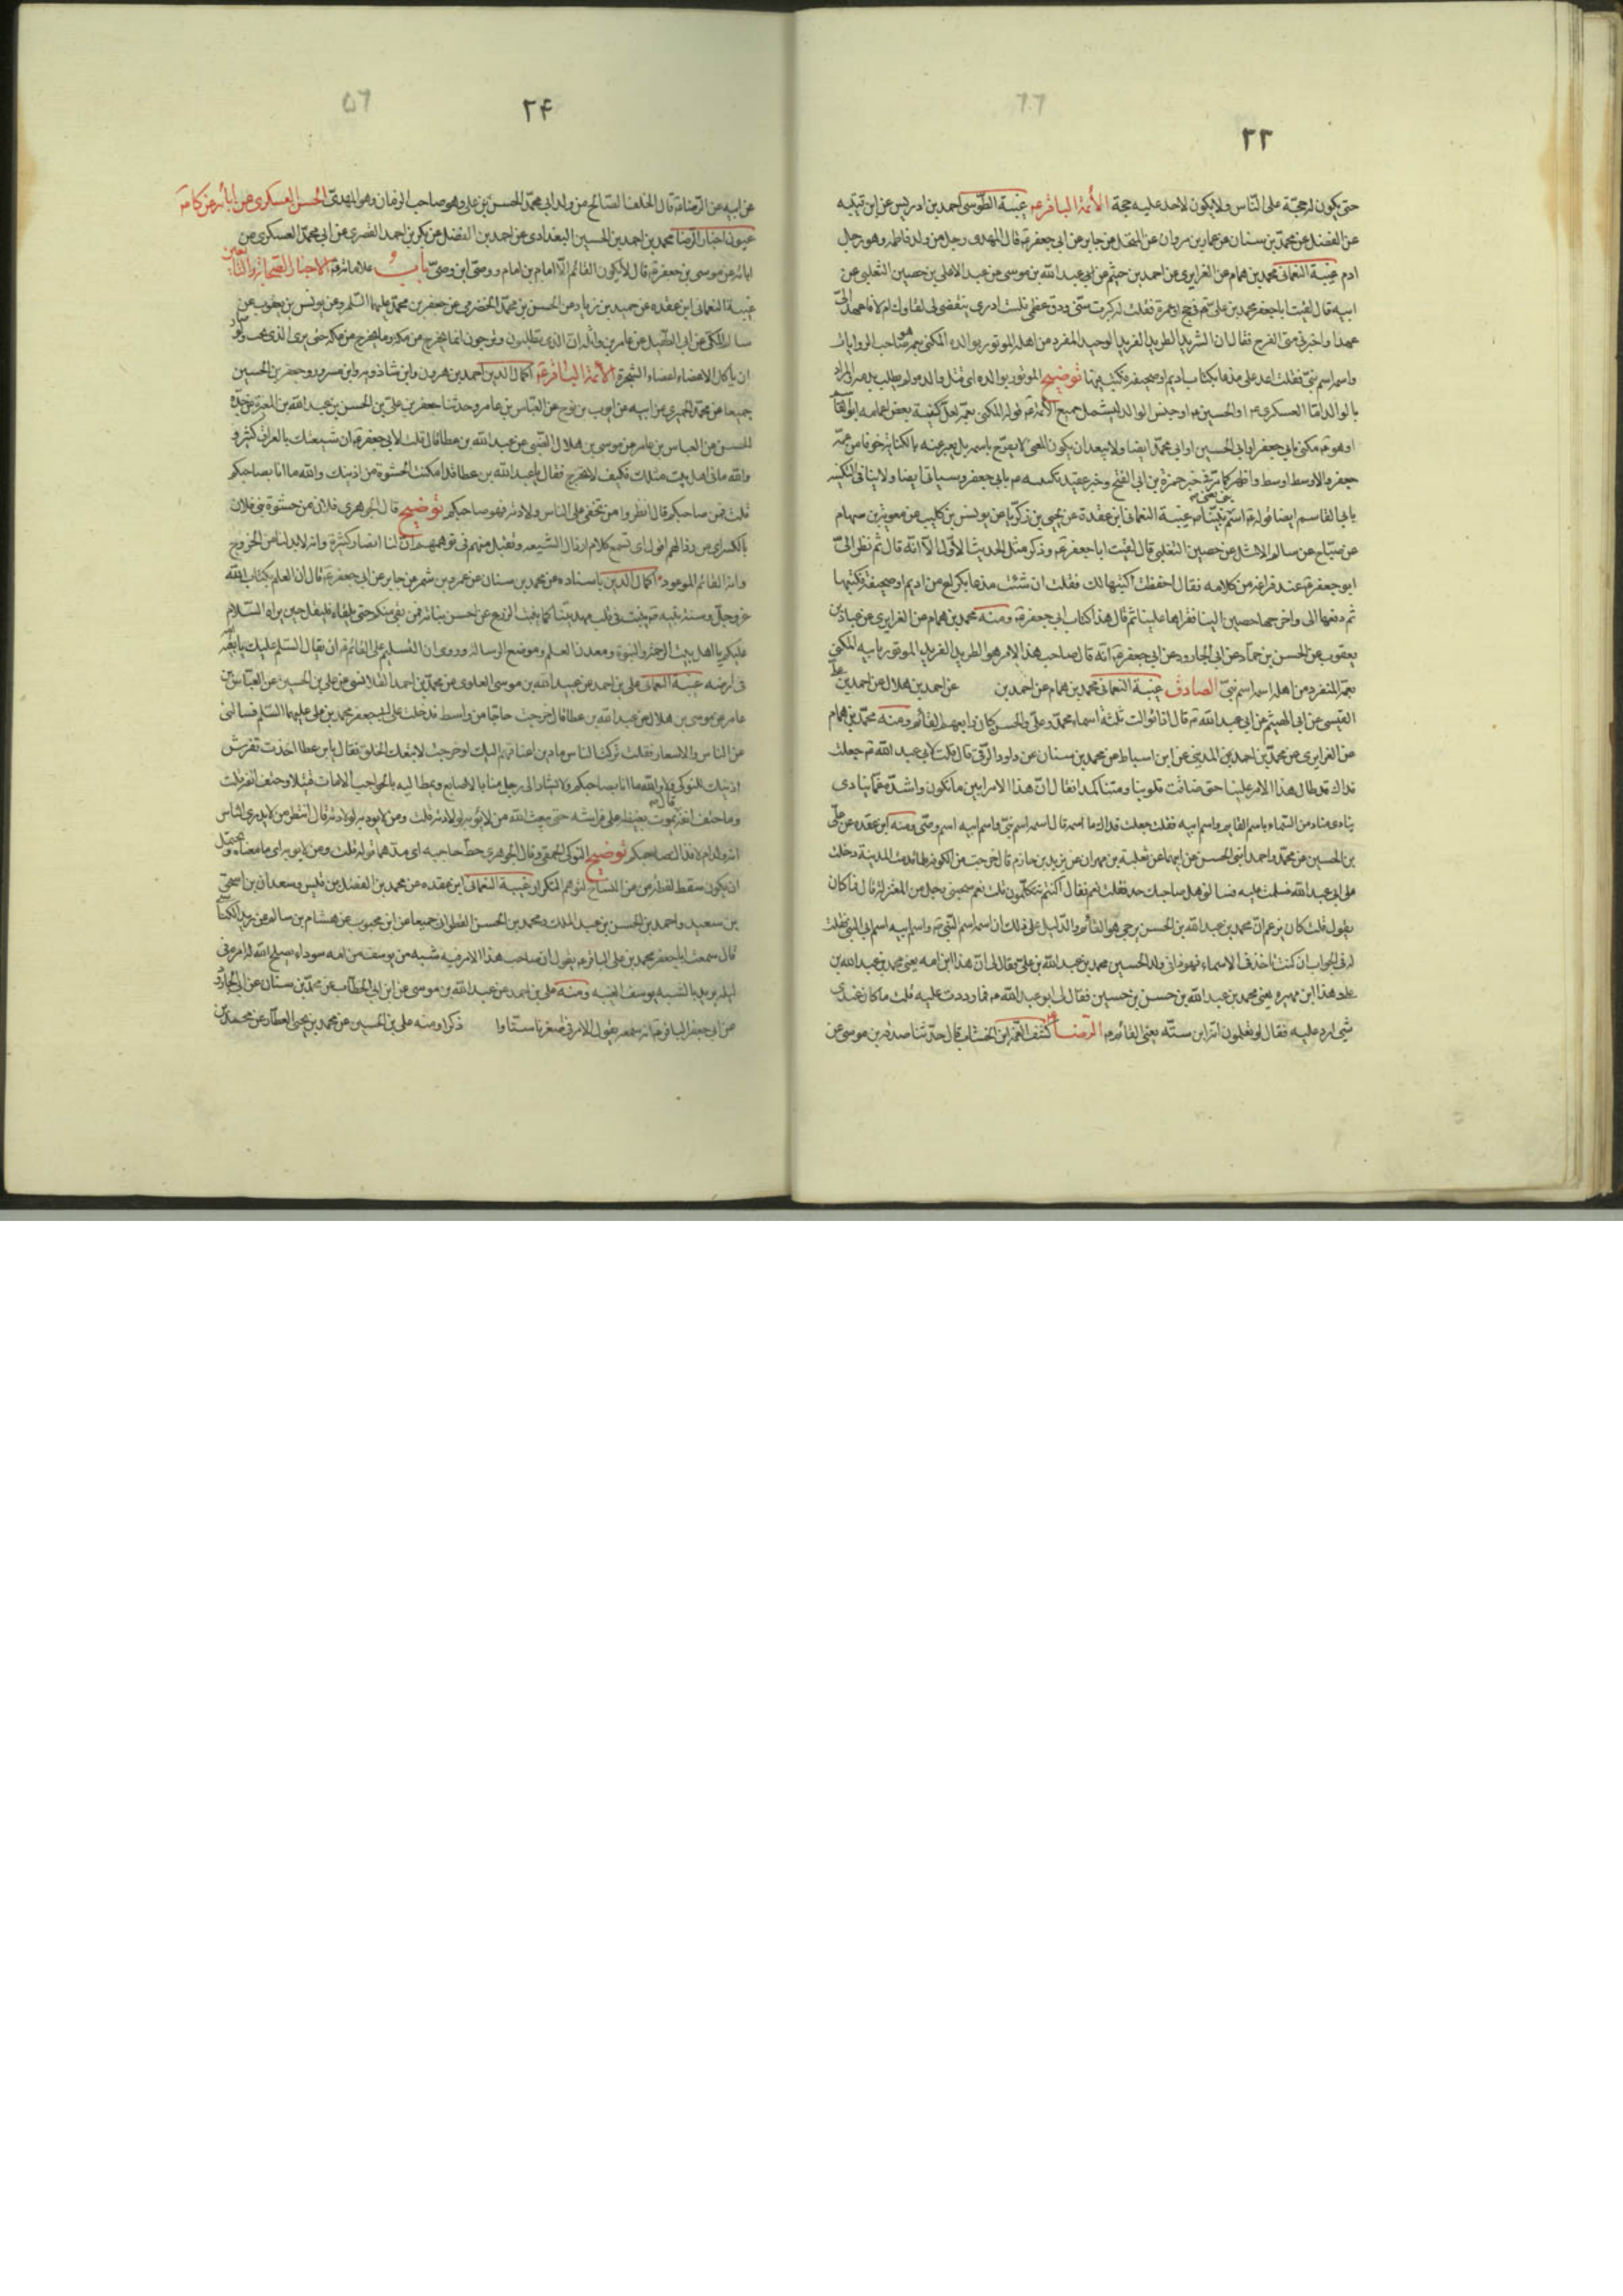 ٢٣
حتى يكون له حجة على الناس ولا يكون لاحد عليه حجة الأئمة الباقر ع غيبة الطوسي احمد بن ادريس عن ابن قتيبه
عن الفضل عن محمد بن سنان عن عمار بن مروان عن المنخل عن جابر عن ابي جعفر ع قال المهدي رجل من ولد فاطمه وهو رجل
ادم غيبة النعماني محمد بن همام عن الفزاري عن احمد بن ميثم عن ابي عبد الله بن موسى عن عبد الاعلى بن حصين الثعلبي عن
ابيه قال لقيت ابا جعفر محمد بن علي ع في حج او عمرة فقلت له كبرت سني ودق عظمي فلست ادري يقضى لي لقاؤك ام لا فاعهد الي
عهدا واخبرني متى الفرج فقال ان الشريد الطريد الفريد الوحيد المفرد من اهله الموتور بوالده المكنى بعمه هو صاحب الرايات
واسمه اسم نبي فقلت اعد علي فدعا بكتاب اديم او صحيفة فكتب فيها توضيح الموتور بوالده اي قتل والده ولم يطلب بدمه والمراد
بالوالد اما العسكري ع او الحسين ع او جنس الوالد ليشمل جميع الأئمة ع قوله المكنى بعمه لعل كنية بعض اعمامه ابو القاسم
او هو ع مكنى بابي جعفر او ابي الحسين او ابي محمد ايضا ولا يبعد ان يكون المعنى لا يصرح باسمه بل يعبر عنه بالكناية خوفا من عمه
جعفر والاوسط اوسط واظهر كما مر في خبر حمزة بن ابي الفتح وخبر عقيد تكنيته ع بابي جعفر وسياتي ايضا ولا ينافي التكنيه
بابي القاسم ايضا قوله ع اسم نبي يعني نبينا ص غيبة النعماني ابن عقدة عن يحيى بن زكريا عن يونس بن كليب عن معوية بن هشام
عن صباح عن سالم الاشل عن حصين التغلبي قال لقيت ابا جعفر ع وذكر مثل الحديث الاول الا انه قال ثم نظر الي
ابو جعفر ع عند فراغه من كلامه فقال احفظت ام اكتبها لك فقلت ان شئت فدعا بكراع من اديم او صحيفة فكتبها
ثم دفعها الى واخرجها حصين الينا فقراها علينا ثم قال هذا كتاب ابي جعفر ع ومنه محمد بن همام عن الفزاري عن عباد بن
يعقوب عن الحسن بن حماد عن ابي الجارود عن ابي جعفر ع انه قال صاحب هذا الامر هو الطريد الفريد الموتور بابيه المكنى
بعمه المنفرد من اهله اسمه اسم نبي الصادق غيبة النعماني محمد بن همام عن احمد بن عن احمد بن هلال عن احمد بن علي
القيسي عن ابي الهيثم عن ابي عبد الله ع قال اذا توالت ثلثة اسماء محمد وعلي والحسن كان رابعهم القائم ومنه محمد بن همام
عن الفزاري عن محمد بن احمد المديني عن ابن اسباط عن محمد بن سنان عن داود الرقي قال قلت لابي عبد الله ع جعلت
فداك قد طال هذا الامر علينا حتى ضاقت قلوبنا ومتنا كمدا فقال ان هذا الامر ايس ما تكون واشد غما ينادي
ينادي مناد من السماء باسم القايم واسم ابيه فقلت جعلت فداك ما اسمه قال اسمه اسم نبي واسم ابيه اسم وصي ومنه ابن عقده عن علي
بن الحسين عن محمد واحمد ابني الحسن عن ابيهما عن ثعلبة بن مهران عن يزيد بن حازم قال خرجت من الكوفه فلما قدمت المدينة دخلت
على ابي عبد الله فسلمت عليه فسالني هل صاحبك احد فقلت نعم فقال اكنتم تتكلمون قلت نعم صحبني رجل من المغيرية قال فما كان
يقول قلت كان يزعم ان محمد بن عبد الله بن الحسن يرجى هو القائم والدليل على ذلك ان اسمه اسم النبي ص واسم ابيه اسم ابي النبي فقلت
له في الجواب ان كنت تاخذ في الاسماء فهوذا في ولد الحسين محمد بن عبد الله بن علي فقال لي ان هذا ابن امه يعني محمد بن عبد الله بن
علي وهذا ابن مهيره يعني محمد بن عبد الله بن حسن بن حسين فقال لي ابو عبد الله ع فما رددت عليه قلت ما كان عندي
شي ارد عليه فقال لو تعلمون انه ابن ستة يعني القائم ع الرضا ع كشف الغمه ابن الخشاب قال حدثنا صدقه بن موسى عن
٢۴
عن ابيه عن الرضا ع قال الخلف الصالح من ولد ابي محمد الحسن بن علي وهو صاحب الزمان وهو المهدي الحسن العسكري عن ابائه عن كا ع
عيون اخبار الرضا محمد بن احمد بن الحسين البغدادي عن احمد بن الفضل عن بكر بن احمد القصري عن ابي محمد العسكري عن
ابائه عن موسى بن جعفر ع قال لا يكون القائم الا امام بن امام ووصي ابن وصي باب و علاماته ع الاخبار الصحابة والتابعين
غيبة النعماني ابن عقده عن حميد بن زياد عن الحسن بن محمد الحضرمي عن جعفر بن محمد عليهما السلم وعن يونس بن يعقوب عن
سالم المكي عن ابي الطفيل عن عامر بن واثله ان الذي تطلبون وترجون انما يخرج من مكه وما يخرج من مكه حتى يرى الذي يحب ولو صار
ان ياكل الاعضاء اعضاء الشجرة الأئمة الباقر ع اكمال الدين احمد بن هرون وابن شاذويه وابن مسرور وجعفر بن الحسين
جميعا عن محمد الحميري عن ابيه عن ايوب بن نوح عن العباس بن عامر وحدثنا جعفر بن علي بن الحسن بن عبد الله بن المغيرة عن جده
الحسن عن العباس بن عامر عن موسى بن هلال الضبي عن عبد الله بن عطا قال قلت لابي جعفر ع ان شيعتك بالعراق كثير و
والله ما في اهل بيتك مثلك فكيف لا تخرج فقال يا عبد الله بن عطا قد امكنت الحشوة من اذنيك والله ما انا بصاحبكم
قلت فمن صاحبكم قال انظروا من تخفى على الناس ولادته فهو صاحبكم توضيح قال الجوهري فلان من حشوة بني فلان
بالكسر اي من رذالهم اقول اي تسمع كلام ارذال الشيعه وتقبل منهم في توهمهم ان لنا انصار كثيرة وانه لابد لنا من الخروج
وانه القائم الموعود اكمال الدين باسناده عن محمد بن سنان عن عمرو بن شمر عن جابر عن ابي جعفر ع قال ان العلم بكتاب الله
عز وجل وسنة نبيه ص ينبت في قلب مهدينا كما ينبت الزرع عن احسن نباته فمن بقي منكم حتى يلقاه فليقل حين يراه السلام
عليكم يا اهل بيت الرحمة والنبوة ومعدن العلم وموضع الرسالة وروي ان التسليم على القائم ع ان يقال السلم عليك يا بقية الله
في ارضه غيبة النعماني علي بن احمد عن عبيد الله بن موسى العلوي عن محمد بن احمد القلانسي عن علي بن الحسين عن العباس بن
عامر عن موسى بن هلال عن عبد الله بن عطا قال خرجت حاجا من واسط فدخلت على ابي جعفر محمد بن علي عليهما السلم فسالني
عن الناس والاسعار فقلت تركت الناس مادين اعناقهم اليك لو خرجت لاتبعك الخلق فقال يا بن عطا اخذت تفرش
اذنيك للنوكى لا والله ما انا بصاحبكم ولا يشار الى رجل منا بالاصابع ويمط اليه بالحواجب الا مات قتيلا او حتف انفه قلت
وما حتف انفه قال يموت بغيظه على فراشه حتى يبعث الله من لا يؤبه لولادته قلت ومن لا يؤبه لولادته قال انظر من لا يدري الناس
انه ولد ام لا فذاك صاحبكم توضيح النوكى الحمقى وقال الجوهري حط حاجبه اي مدهما قوله قلت ومن لا يؤبه اي ما معناه ويحتمل
ان يكون سقط لفظة من من النساخ لتوهم التكرار غيبة النعماني ابن عقده عن محمد بن الفضل بن قيس وسعدان بن اسحق
بن سعيد واحمد بن الحسن بن عبد الملك ومحمد بن الحسن القطواني جميعا عن ابن محبوب عن هشام بن سالم عن يزيد الكناسي
قال سمعت ابا جعفر محمد بن علي الباقر ع يقول ان صاحب هذا الامر فيه شبه من يوسف من امه سوداء يصلح الله له امره في
ليله يريد بالشبه يوسف الغيبه ومنه علي بن احمد عن عبد الله بن موسى عن ابن ابي الخطاب عن محمد بن سنان عن ابي الجارود
عن ابي جعفر الباقر ع انه سمعه يقول الامر في اصغرنا سنا وا ذكرا ومنه علي بن الحسين عن محمد بن يحيى العطار عن محمد بن